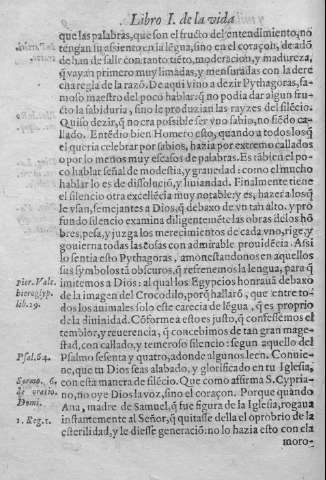 Libro I. de la vida
que las palabras, que son el fructo del entendimiento, no
tengan su assiento en la lēgua, sino en el coraçon, de adō
de han de salir con tanto tiēto, moderacion, y madureza,
q̄ vayan primero muy limadas, y mensuradas con la dere
cha regla de la razō. De aqui vino a dezir Pythagoras, fa-
moso maestro del poco hablar, q̄ no podia dar algun fru-
cto la sabiduria, sino le produzian las rayzes del silēcio.
Quiso dezir, q̄ no era possible ser vno sabio, no siēdo ca-
llado. Entēdio bien Homero esto, quando a todos los q̄
el queria celebrar por sabios, hazia por extremo callados
o por lo menos muy escasos de palabras. Es tābien el po-
co hablar señal de modestia, y grauedad: como el mucho
hablar lo es de dissoluciō, y liuiandad. Finalmente tiene
el silencio otra excelēcia muy notable: y es, hazer a los q̄
le vsan, semejantes a Dios, q̄ debaxo de vn tan alto, y pro
fundo silencio examina diligentemēte las obras de los hō
bres, pesa, y juzga los merecimientos de cada vno, rige, y
gouierna todas las cosas con admirable prouidēcia. Assi
lo sentia esto Pythagoras, amonestandonos en aquellos
sus symbolos tā obscuros, q̄ refrenemos la lengua, para q̄
imitemos a Dios: al qual los Egypcios honrauā debaxo
pier. Vale.
hieroglyp.
lib. 29.
de la imagen del Crocodilo, porq̄ hallarō, que entre to-
dos los animales solo este carecia de lēgua, q̄ es proprio
de la diuinidad. Cōforme a esto es justo, q̄ confessēmos el
temblor, y reuerencia, q̄ concebimos de tan gran mage-
stad, con callado, y temeroso silencio: segun aquello del
Psal. 64.
Psalmo sesenta y quatro, adonde algunos leen. Conuie-
ne, que tu Dios seas alabado, y glorificado en tu Iglesia,
Sermo. 6.
de oratio.
Domi.
con esta manera de silēcio. Que como affirma S. Cypria-
no, no oye Dios la voz, sino el coraçon. Porque quando
Ana, madre de Samuel, q̄ fue figura de la Iglesia, rogaua
1. Reg. 1.
instantemente al Señor, q̄ quitasse della el oprobrio de la
esterilidad, y le diesse generaciō: no lo hazia esto con cla
moro-